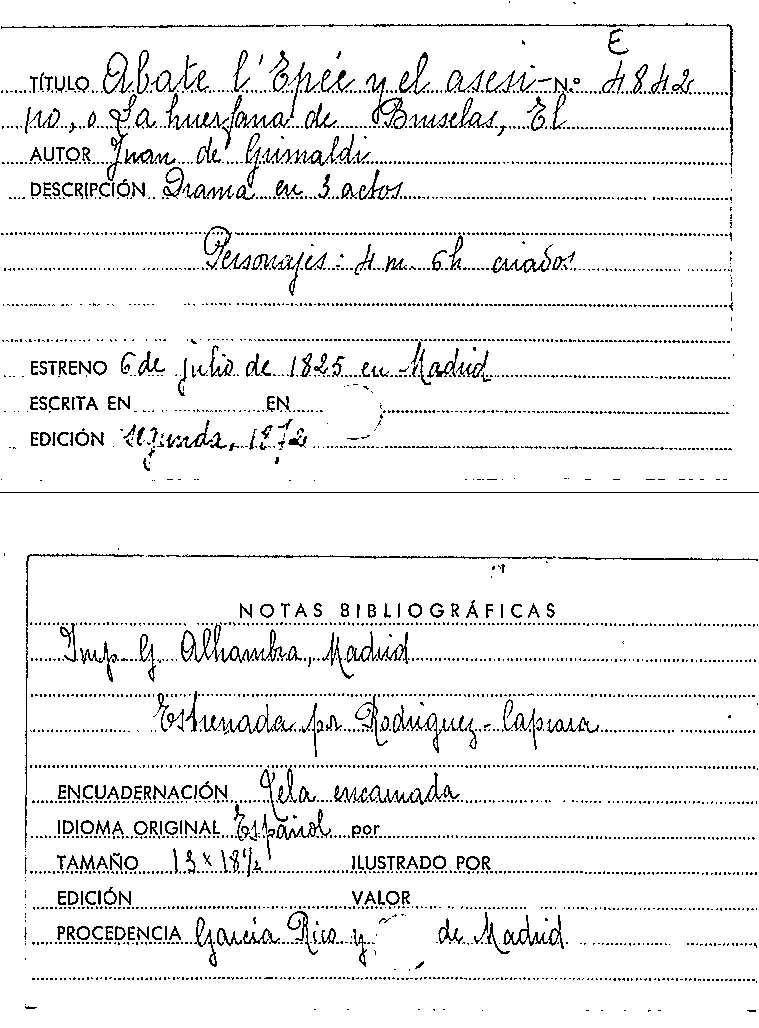 E
TÍTULO Abate l'Epée y el asesi- N.º 4842
no, o La huerfana de Bruselas, El
AUTOR Juan de Grimaldi
DESCRIPCIÓN Drama en 3 actos
Personajes: 4 m. 6 h criados
ESTRENO 6 de julio de 1825 en Madrid
ESCRITA EN EN
EDICIÓN segunda, 1872
NOTAS BIBLIOGRÁFICAS
Imp. G. Alhambra, Madrid
Estrenada por Rodriguez - Caprara
ENCUADERNACIÓN Tela encarnada
IDIOMA ORIGINAL Español por
TAMAÑO 13 x 18 1/2 ILUSTRADO POR
EDICIÓN VALOR
PROCEDENCIA García Rico y de Madrid